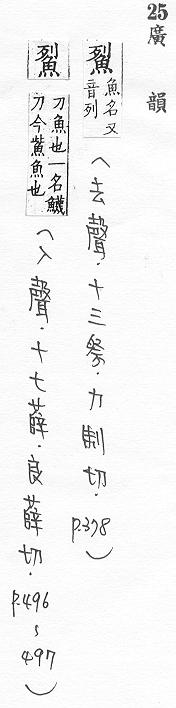 25 廣韻
鮤 魚名又音列（去聲．十三祭．力制切．p.378）
鮤 刀魚也一名鱴刀今鮆魚也（入聲．十七薛．良薛切．p.496~497）